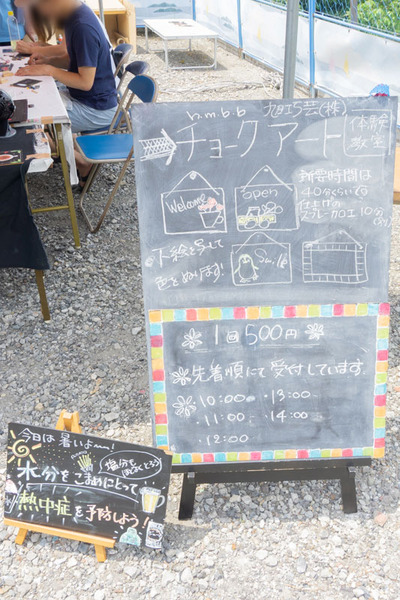 h.m.b.b 九工芸(株)
チョークアート
体験
教室
Welcome
open
Smile
所要時間は
40分くらい
仕上げの
スプレー加工 10分
下絵を写して
色をぬります
1回 500円
先着順にて 受付しています。
10:00〜 ・13:00〜
・11:00〜 ・14:00〜
・12:00〜
今日は 暑いよ〜!
塩分も
ほどよくとろう
水分をこまめにとって
熱中症を予防しよう!